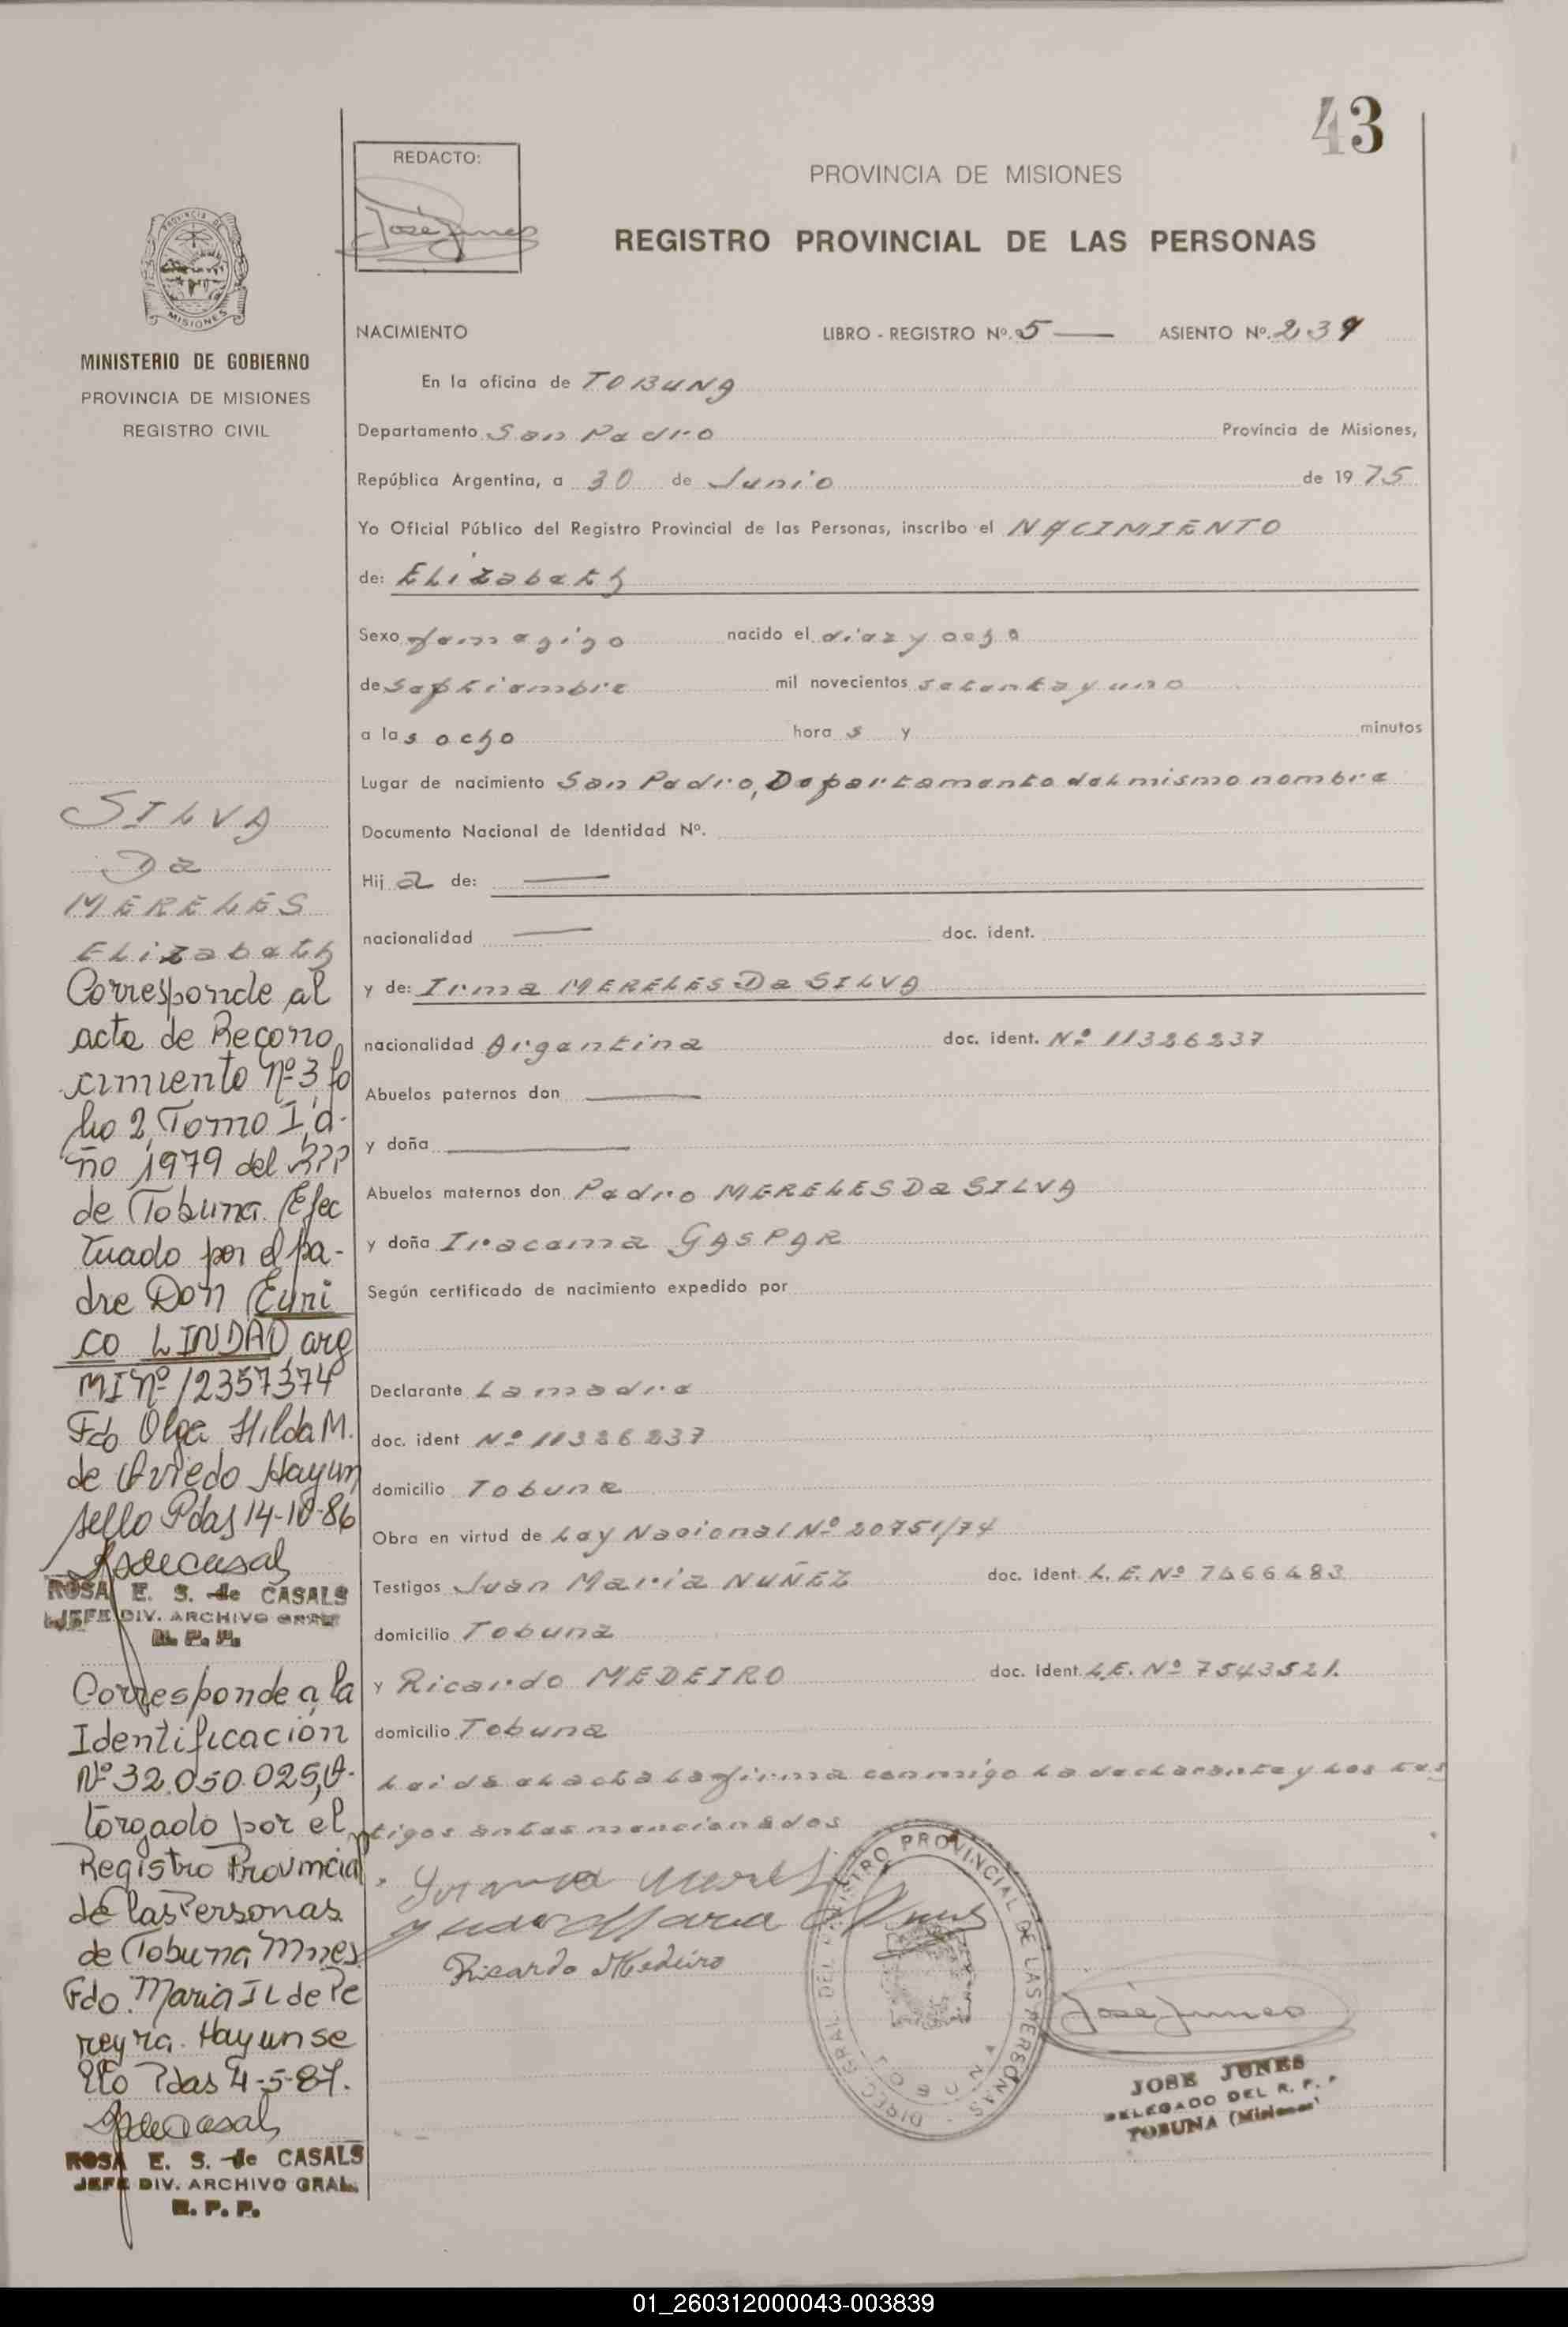 43
REDACTO:
José Junes
PROVINCIA DE MISIONES
REGISTRO PROVINCIAL DE LAS PERSONAS
PROVINCIA DE
MISIONES
MINISTERIO DE GOBIERNO
PROVINCIA DE MISIONES
REGISTRO CIVIL
NACIMIENTO LIBRO - REGISTRO Nº. 5 — ASIENTO Nº. 239
En la oficina de TOBUNA
Departamento San Pedro Provincia de Misiones,
República Argentina, a 30 de Junio de 1975
Yo Oficial Público del Registro Provincial de las Personas, inscribo el NACIMIENTO
de: Elizabeth
Sexo femenino nacido el diez y ocho
de septiembre mil novecientos setenta y uno
a las ocho horas y minutos
Lugar de nacimiento San Pedro, Departamento del mismo nombre
Documento Nacional de Identidad Nº.
Hija de: —
nacionalidad — doc. ident.
y de: Irma MERELES Da SILVA
nacionalidad Argentina doc. ident. Nº 11326237
Abuelos paternos don —
y doña —
Abuelos maternos don Pedro MERELES Da SILVA
y doña Iracema GASPAR
Según certificado de nacimiento expedido por
Declarante La madre
doc. ident Nº 11326237
domicilio Tobuna
Obra en virtud de Ley Nacional Nº 20751/74
Testigos Juan Maria NUÑEZ doc. ident. L.E. Nº 7466483
domicilio Tobuna
y Ricardo MEDEIRO doc. ident. L.E. Nº 7543521.
domicilio Tobuna
Leida el acta la firma conmigo la declarante y los tes
tigos antes mencionados
Ricardo Medeiro
DIREC. GRAL. DEL REGISTRO PROVINCIAL DE LAS PERSONAS -
TOBUNA
José Junes
JOSE JUNES
DELEGADO DEL R. P. P.
TOBUNA (Misiones)
SILVA
Da
MERELES
Elizabeth
Corresponde al
acta de Recono
cimiento Nº 3, fo
lio 2, Tomo I, a-
ño 1979 del RPP
de Tobuna. Efec
tuado por el pa-
dre Don Euri
co LINDAD, arg
MI Nº 12357374
Fdo Olga Hilda M.
de Oviedo Hay un
sello Pdas 14-10-86
ROSA E. S. de CASALS
JEFE DIV. ARCHIVO GRAL.
R. P. P.
Corresponde a la
Identificación
Nº 32.050.025, O-
torgado por el
Registro Provincial
de las Personas
de Tobuna Mnes.
Fdo. Maria I L de Pe
reyra. Hay un se
llo Pdas 4-5-87.
ROSA E. S. de CASALS
JEFE DIV. ARCHIVO GRAL.
R. P. P.
01_260312000043-003839